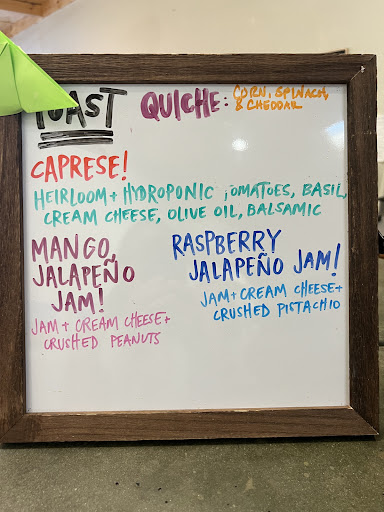 TOAST QUICHE: CORN, SPINACH,
& CHEDDAR
CAPRESE!
HEIRLOOM + HYDROPONIC TOMATOES, BASIL,
CREAM CHEESE, OLIVE OIL, BALSAMIC
MANGO
JALAPEÑO
JAM!
JAM + CREAM CHEESE +
CRUSHED PEANUTS
RASPBERRY
JALAPEÑO JAM!
JAM + CREAM CHEESE +
CRUSHED PISTACHIO